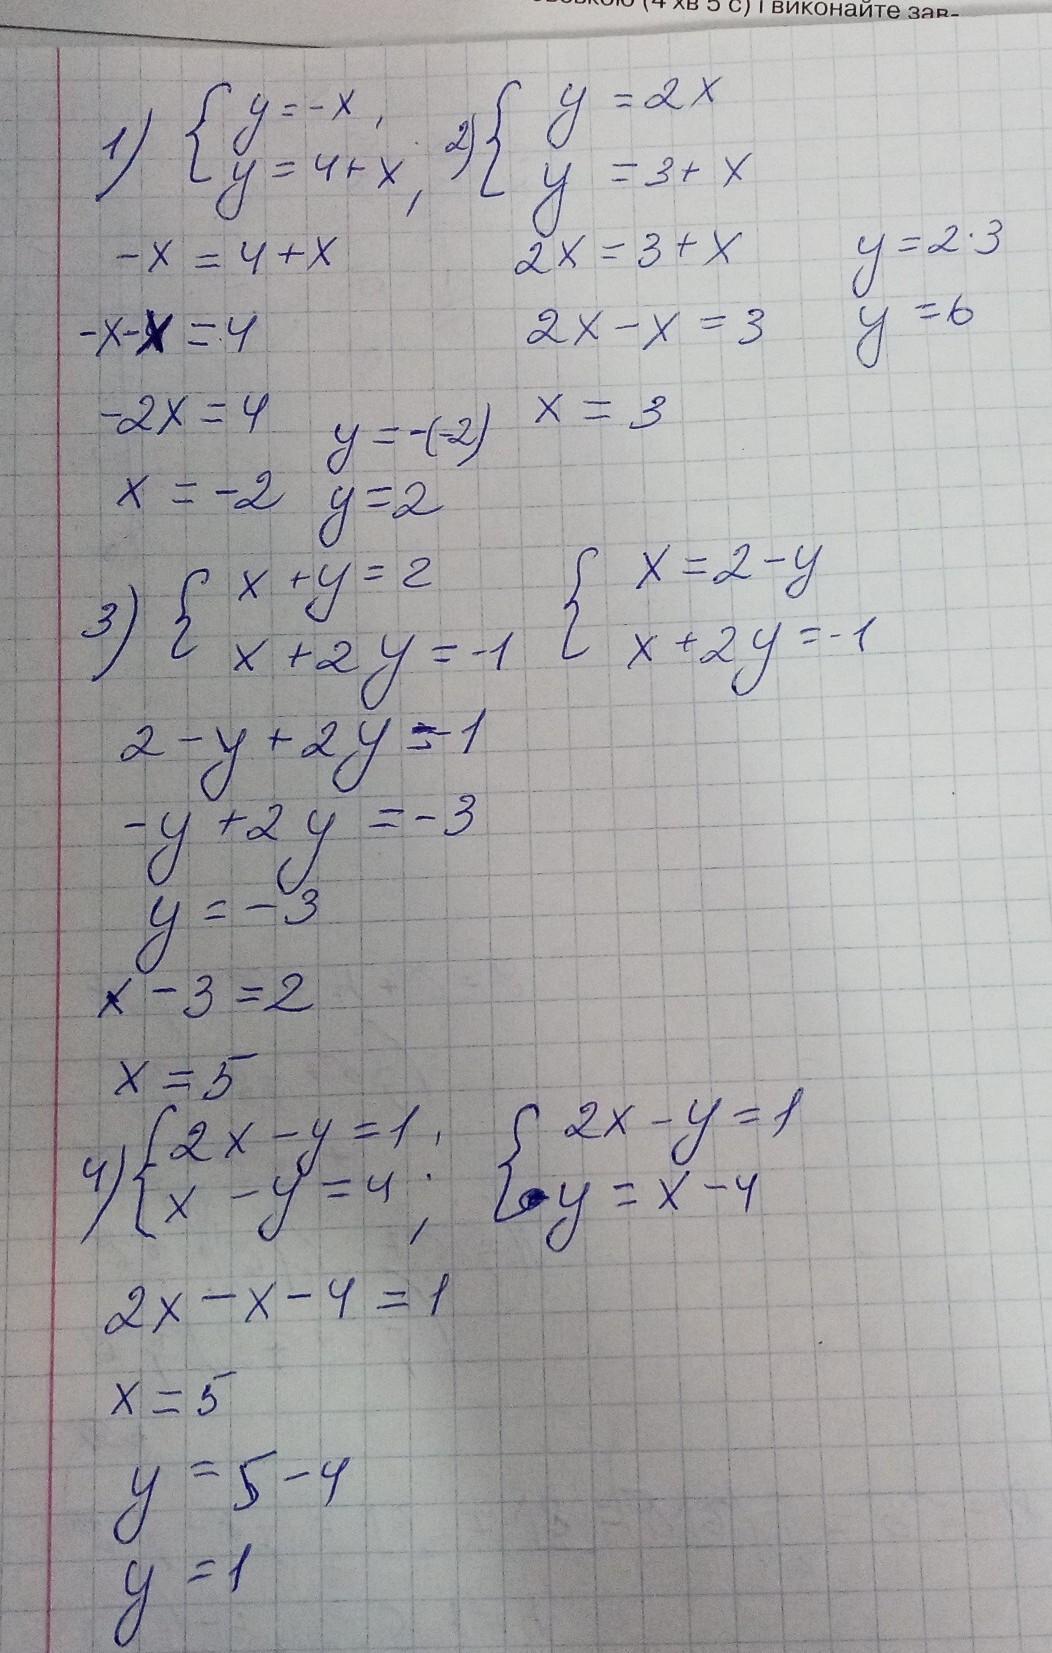 (4 хв 5 с) і виконайте зав-
1) { y = -x ,
y = 4 + x ,
-x = 4 + x
-x - x = 4
-2x = 4
x = -2
y = -(-2)
y = 2
2) { y = 2x
y = 3 + x
2x = 3 + x
2x - x = 3
x = 3
y = 2 · 3
y = 6
3) { x + y = 2
x + 2y = -1
{ x = 2 - y
x + 2y = -1
2 - y + 2y = -1
-y + 2y = -3
y = -3
x - 3 = 2
x = 5
4) { 2x - y = 1 ,
x - y = 4 ;
{ 2x - y = 1
y = x - 4
2x - x - 4 = 1
x = 5
y = 5 - 4
y = 1